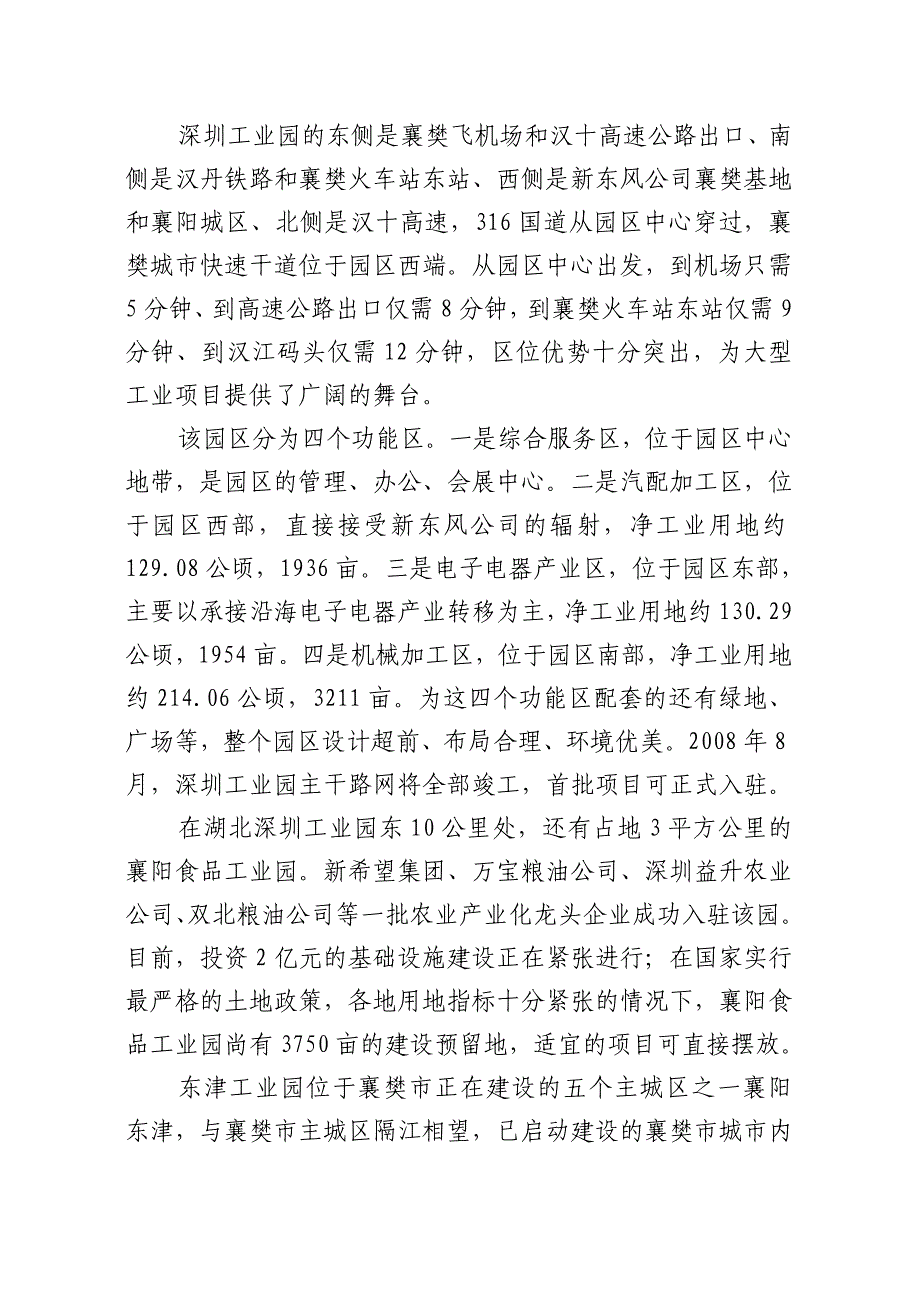 深圳工业园的东侧是襄樊飞机场和汉十高速公路出口、南
侧是汉丹铁路和襄樊火车站东站、西侧是新东风公司襄樊基地
和襄阳城区、北侧是汉十高速，316 国道从园区中心穿过，襄
樊城市快速干道位于园区西端。从园区中心出发，到机场只需
5 分钟、到高速公路出口仅需 8 分钟，到襄樊火车站东站仅需 9
分钟、到汉江码头仅需 12 分钟，区位优势十分突出，为大型
工业项目提供了广阔的舞台。
该园区分为四个功能区。一是综合服务区，位于园区中心
地带，是园区的管理、办公、会展中心。二是汽配加工区，位
于园区西部，直接接受新东风公司的辐射，净工业用地约
129.08 公顷，1936 亩。三是电子电器产业区，位于园区东部，
主要以承接沿海电子电器产业转移为主，净工业用地约 130.29
公顷，1954 亩。四是机械加工区，位于园区南部，净工业用地
约 214.06 公顷，3211 亩。为这四个功能区配套的还有绿地、
广场等，整个园区设计超前、布局合理、环境优美。2008 年 8
月，深圳工业园主干路网将全部竣工，首批项目可正式入驻。
在湖北深圳工业园东 10 公里处，还有占地 3 平方公里的
襄阳食品工业园。新希望集团、万宝粮油公司、深圳益升农业
公司、双北粮油公司等一批农业产业化龙头企业成功入驻该园。
目前，投资 2 亿元的基础设施建设正在紧张进行；在国家实行
最严格的土地政策，各地用地指标十分紧张的情况下，襄阳食
品工业园尚有 3750 亩的建设预留地，适宜的项目可直接摆放。
东津工业园位于襄樊市正在建设的五个主城区之一襄阳
东津，与襄樊市主城区隔江相望，已启动建设的襄樊市城市内